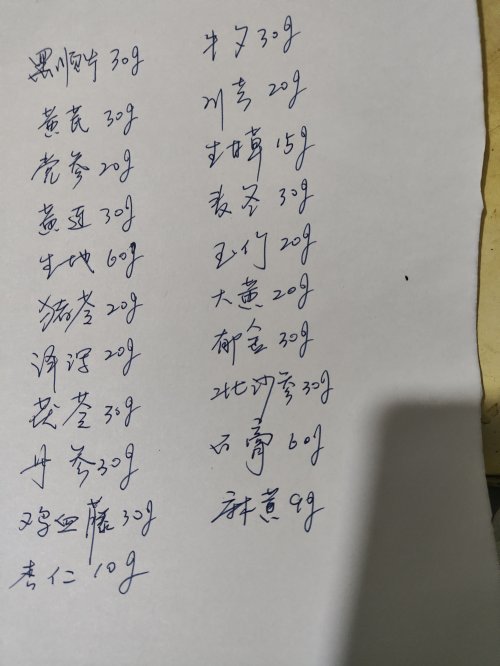 黑顺片 30g
黄芪 30g
党参 20g
黄连 30g
生地 60g
猪苓 20g
泽泻 20g
茯苓 30g
丹参 30g
鸡血藤 30g
杏仁 10g
牛夕 30g
川芎 20g
生甘草 15g
麦冬 30g
玉竹 20g
大黄 20g
郁金 30g
北沙参 30g
石膏 60g
麻黄 9g